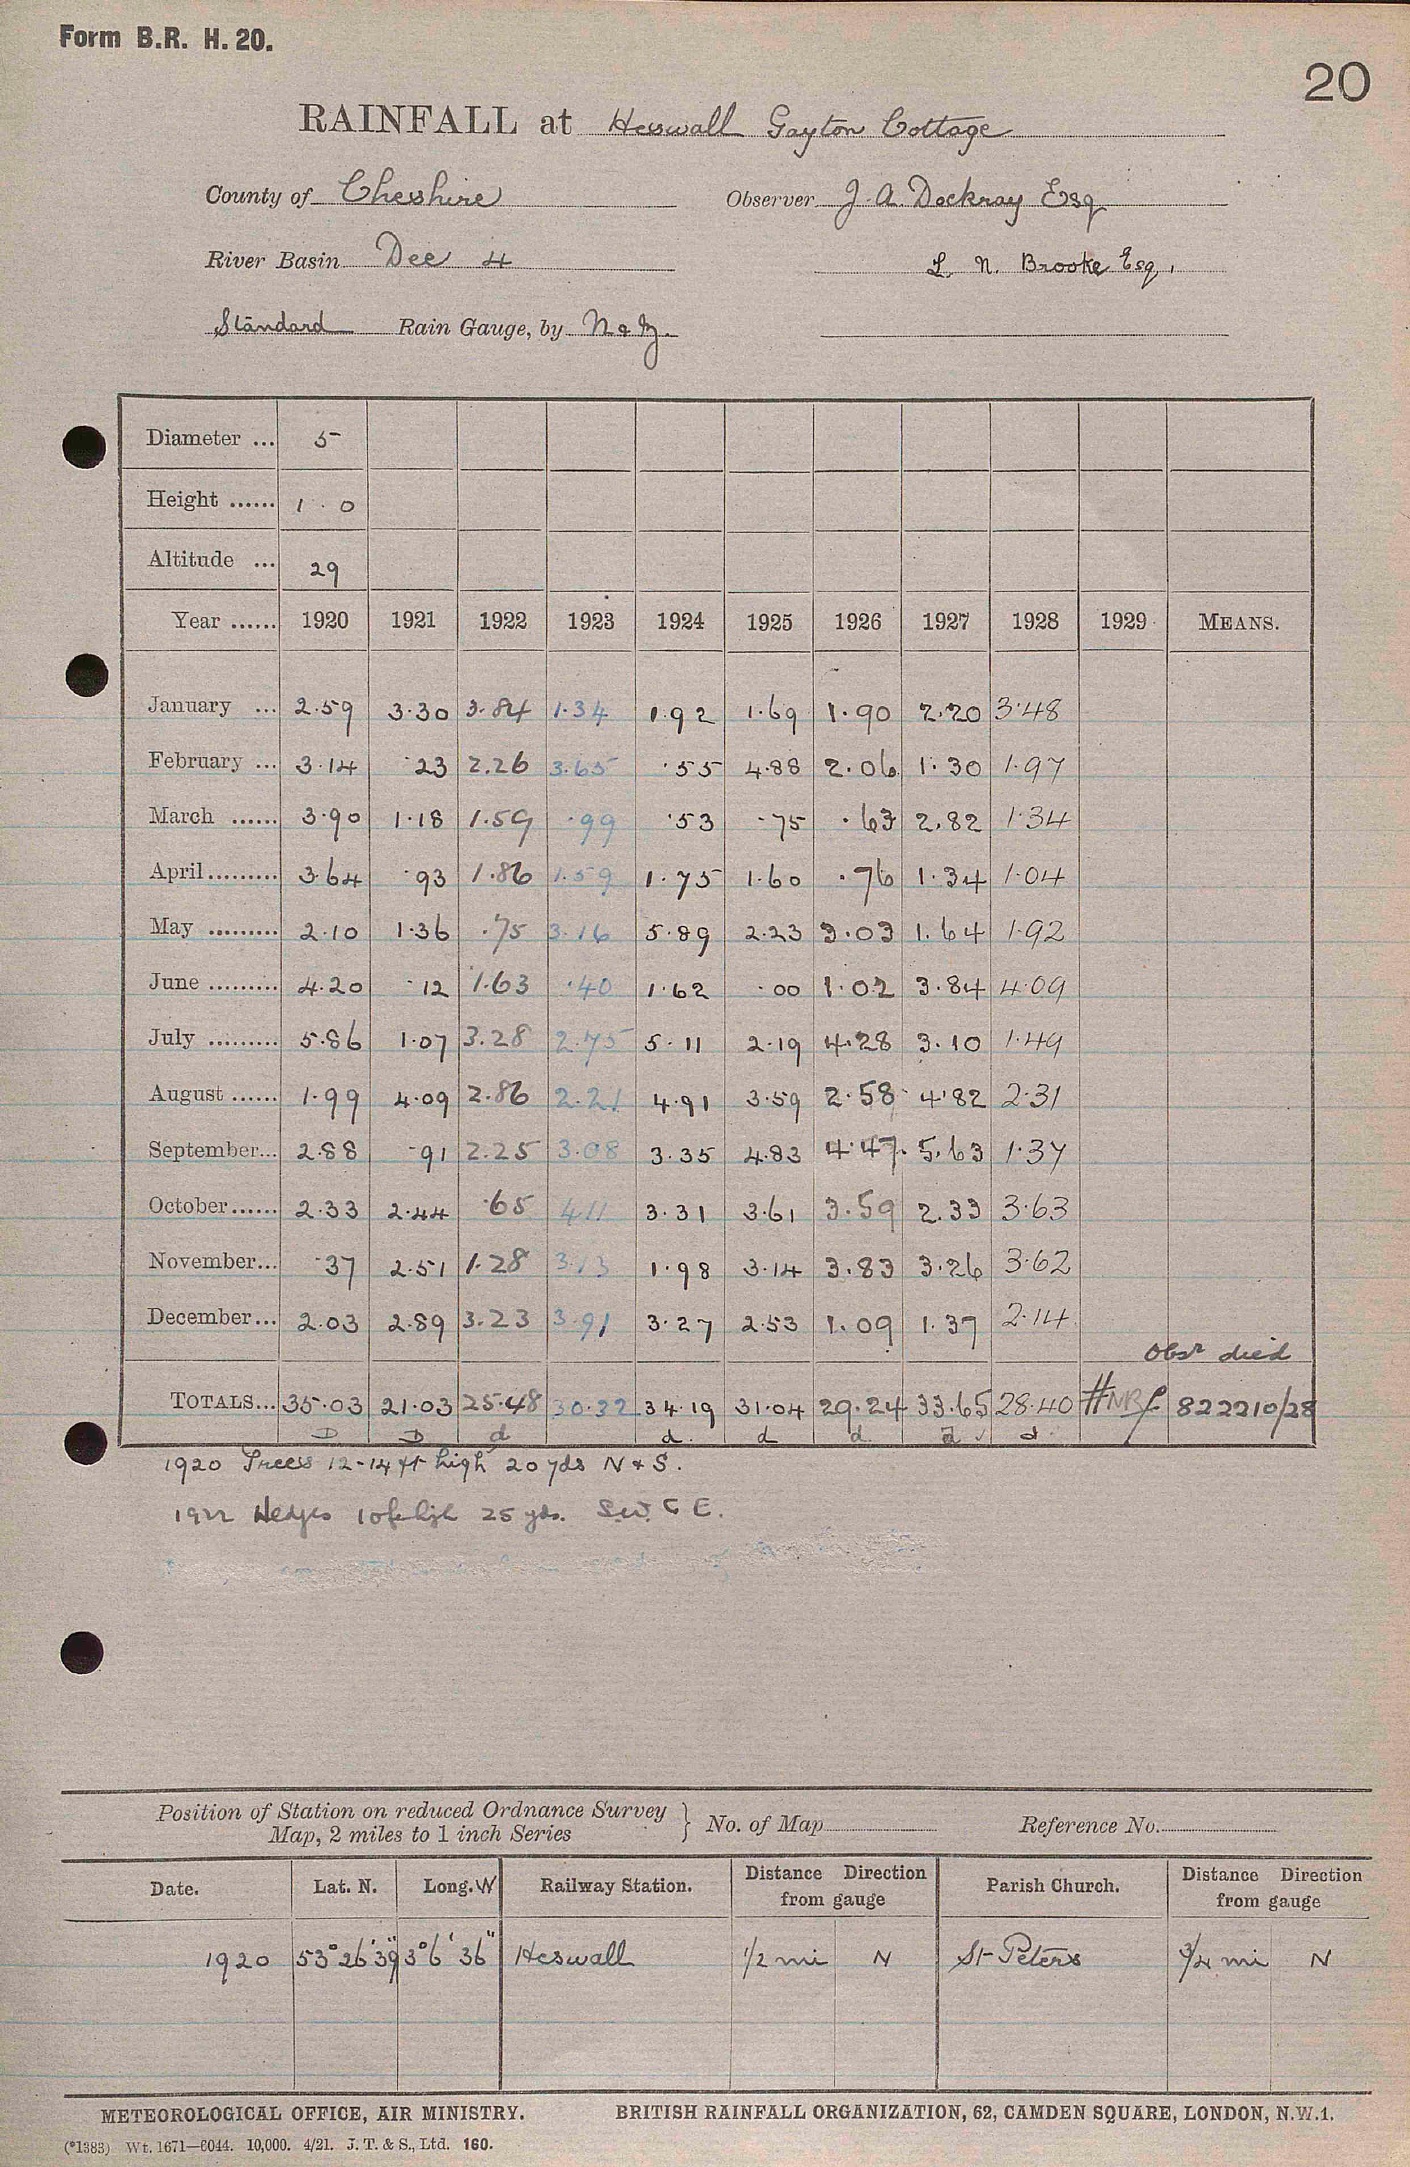 Form B.R. H. 20.
20
RAINFALL at Heswall Gayton Cottage
County of Cheshire Observer J. A. Dockray Esq
River Basin Dee 4 L. N. Brooke Esq.
Standard Rain Gauge, by N & Z.
Diameter ... 5
Height ...... 1 . 0
Altitude ... 29
Year ...... 1920 1921 1922 1923 1924 1925 1926 1927 1928 1929 MEANS.
January ... 2.59 3.30 3.84 1.34 1.92 1.69 1.90 2.20 3.48
February ... 3.14 .23 2.26 3.65 .55 4.88 2.06 1.30 1.97
March ...... 3.90 1.18 1.59 .99 .53 .75 .63 2.82 1.34
April ......... 3.64 .93 1.86 1.59 1.75 1.60 .76 1.34 1.04
May ......... 2.10 1.36 .75 3.16 5.89 2.23 3.03 1.64 1.92
June ......... 4.20 .12 1.63 .40 1.62 .00 1.02 3.84 4.09
July ......... 5.86 1.07 3.28 2.75 5.11 2.19 4.28 3.10 1.49
August ...... 1.99 4.09 2.86 2.21 4.91 3.59 2.58 4.82 2.31
September... 2.88 .91 2.25 3.08 3.35 4.83 4.47 5.63 1.37
October...... 2.33 2.44 .65 4.11 3.31 3.61 3.59 2.33 3.63
November... .37 2.51 1.28 3.13 1.98 3.14 3.83 3.26 3.62
December... 2.03 2.89 3.23 3.91 3.27 2.53 1.09 1.37 2.14
Obsr died
TOTALS... 35.03 21.03 25.48 30.32 34.19 31.04 29.24 33.65 28.40 822210/28
D D d d. d d. d ✓ d
1920 Trees 12-14 ft high 20 yds N & S.
1922 Hedges 10ft high 25 yds. S.W. & E.
Position of Station on reduced Ordnance Survey
Map, 2 miles to 1 inch Series } No. of Map Reference No.
Date. Lat. N. Long. W Railway Station. Distance Direction from gauge Parish Church. Distance Direction from gauge
1920 53° 26' 39" 3° 6' 36" Heswall 1/2 mi N St Peters 3/4 mi N
METEOROLOGICAL OFFICE, AIR MINISTRY. BRITISH RAINFALL ORGANIZATION, 62, CAMDEN SQUARE, LONDON, N.W.1.
(*1383) Wt. 1671—6044. 10,000. 4/21. J. T. & S., Ltd. 160.